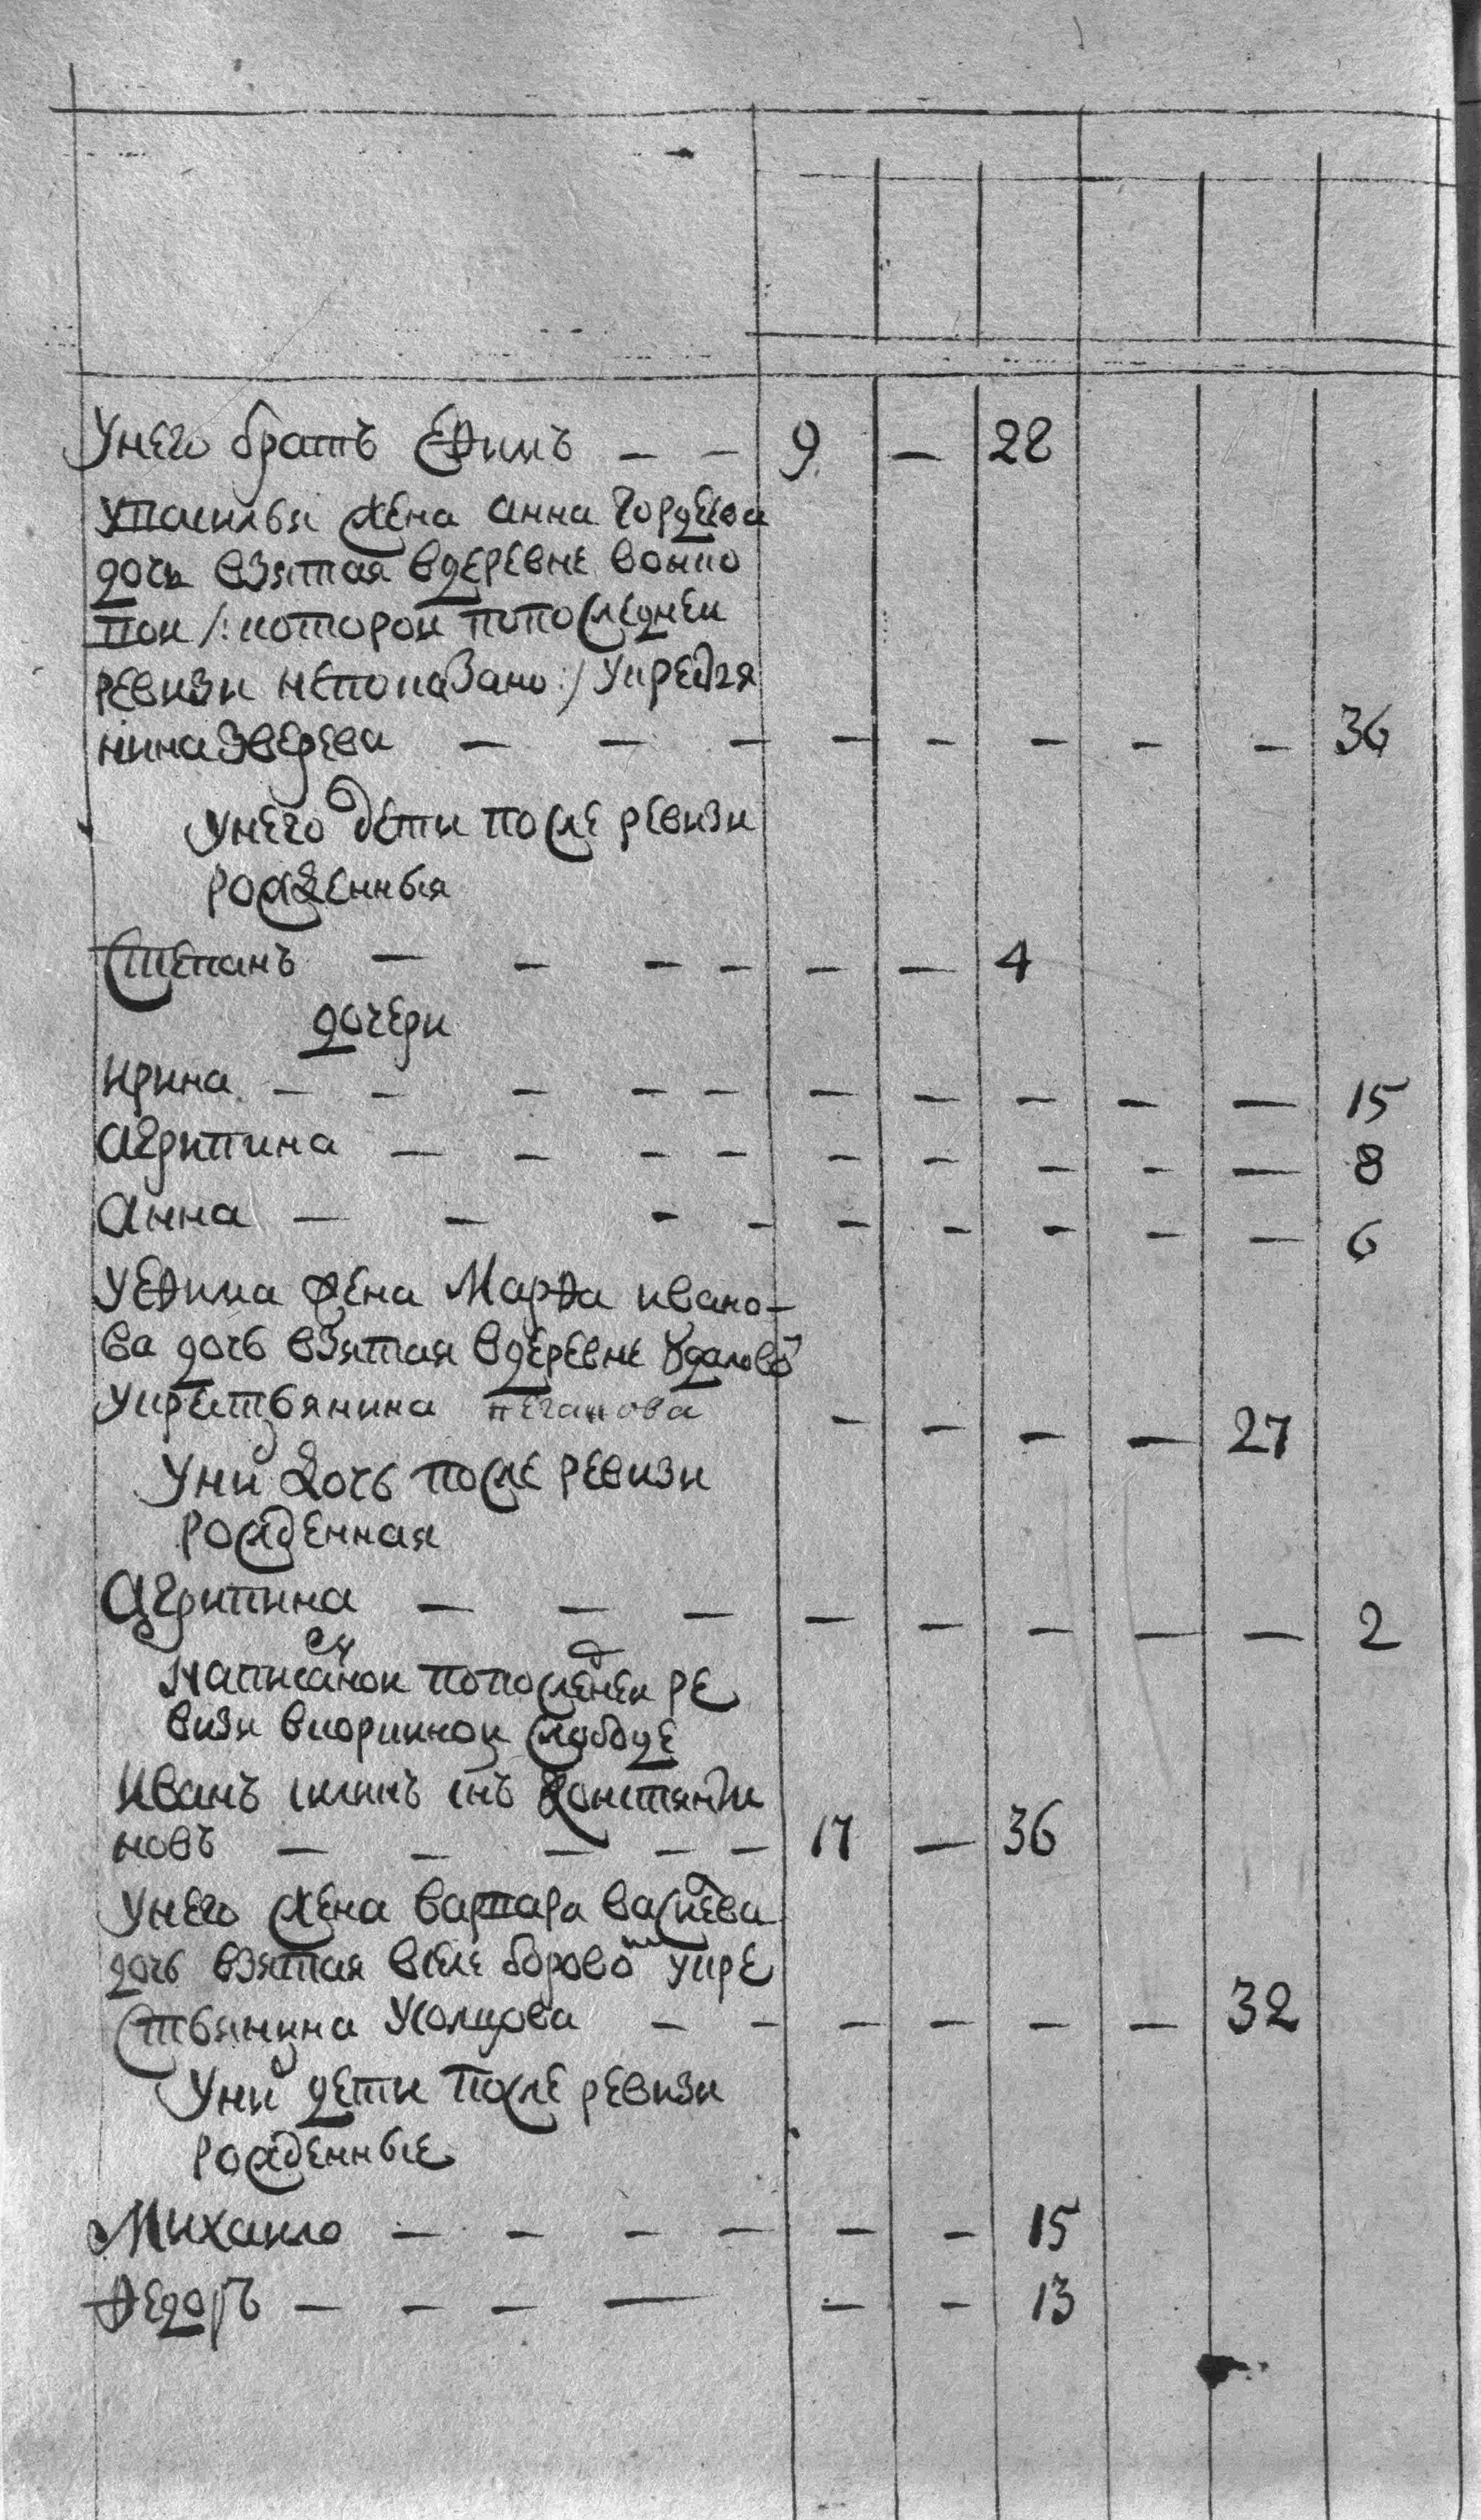 Унего братъ Ефимъ — — 9 — 28
Упаилья жена анна Гордеева
дочь взятая вдеревне
пои /: которои попоследнеи
ревизи непоказано :/ Укрестья
нина Зверева — — — — — — — — 36
Унего дети после ревизи
рожденныя
Степанъ — — — — — — 4
дочери
ирина — — — — — — — — — — 15
агрипина — — — — — — — — — 8
анна — — — — — — — — — 6
Уефима жена Марфа ивано-
ва дочь взятая вдеревне Удалово
Укрестьянина Пеганова — — — — 27
Уни дочь после ревизи
рожденная
агрипина — — — — — — — — 2
Написанои попоследнеи ре
визи вкоркинои слободе
Иванъ снъ Констянти
новъ — — — — — 17 — 36
Унего жена варвара
дочь взятая вселе борово укре
стьянина Усолцова — — — — — — 32
Уни дети после ревизи
рожденные
Михаило — — — — — — 15
Федоръ — — — — — — 13